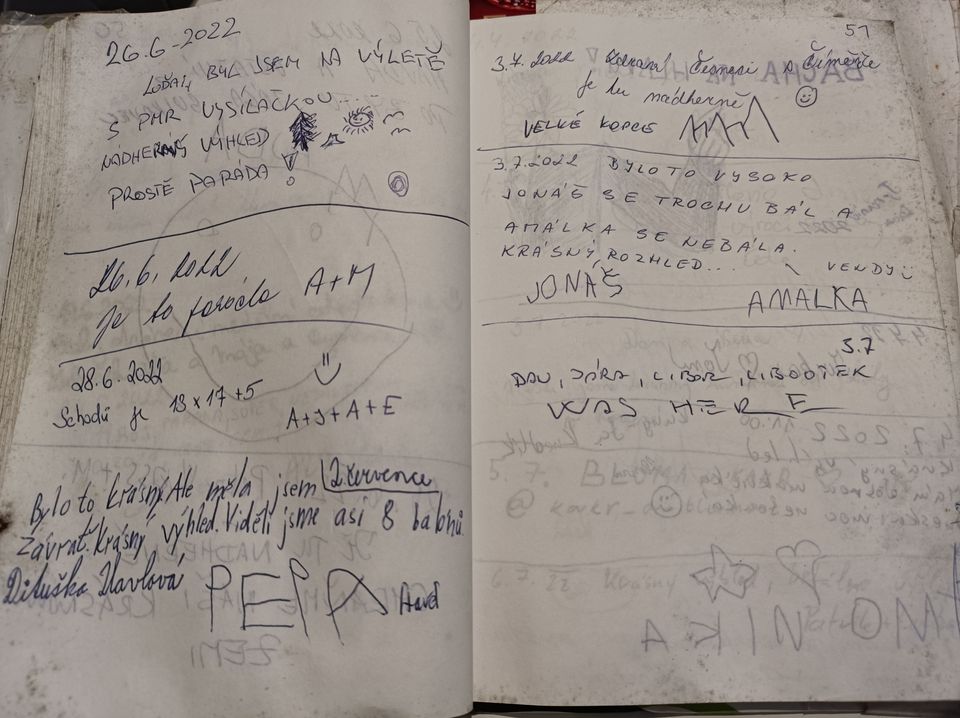 26.6-2022
BYL JSEM NA VÝLETĚ
S PMR VYSÍLAČKOU....
NÁDHERNÝ VÝHLED
PROSTĚ PARÁDA!
26.6. 2022
je to paráda A+M
28.6.2022
Schodů je 13x17+5
A+J+A+E
Bylo to krásný. Ale měla jsem 2 července
závrať. Krásný výhled. Viděli jsme asi 8 balónů.
Dituška Havlová
PEPA
51
3.7.2022
je tu nádherně
VELKÉ KOPCE
3.7.2022 BYLO TO VYSOKO
JONÁŠ SE TROCHU BÁL A
AMÁLKA SE NEBÁLA.
KRÁSNÝ ROZHLED... VENDY
JONÁŠ
AMALKA
3.7
DAN, JÁRA, LIBOR, LIBOREK
WAS HERE